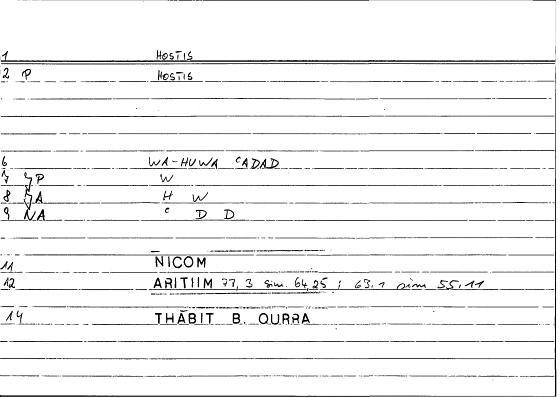 1 HOSTIS
2 P HOSTIS
6 WA-HUWA ᶜADAD
7 P W
8 A H W
9 NA ᶜ D D
11 NICOM
12 ARITIIM 77, 3 sim. 64,25 ; 63.1 sim 55.11
14 THĀBIT B. QURRA